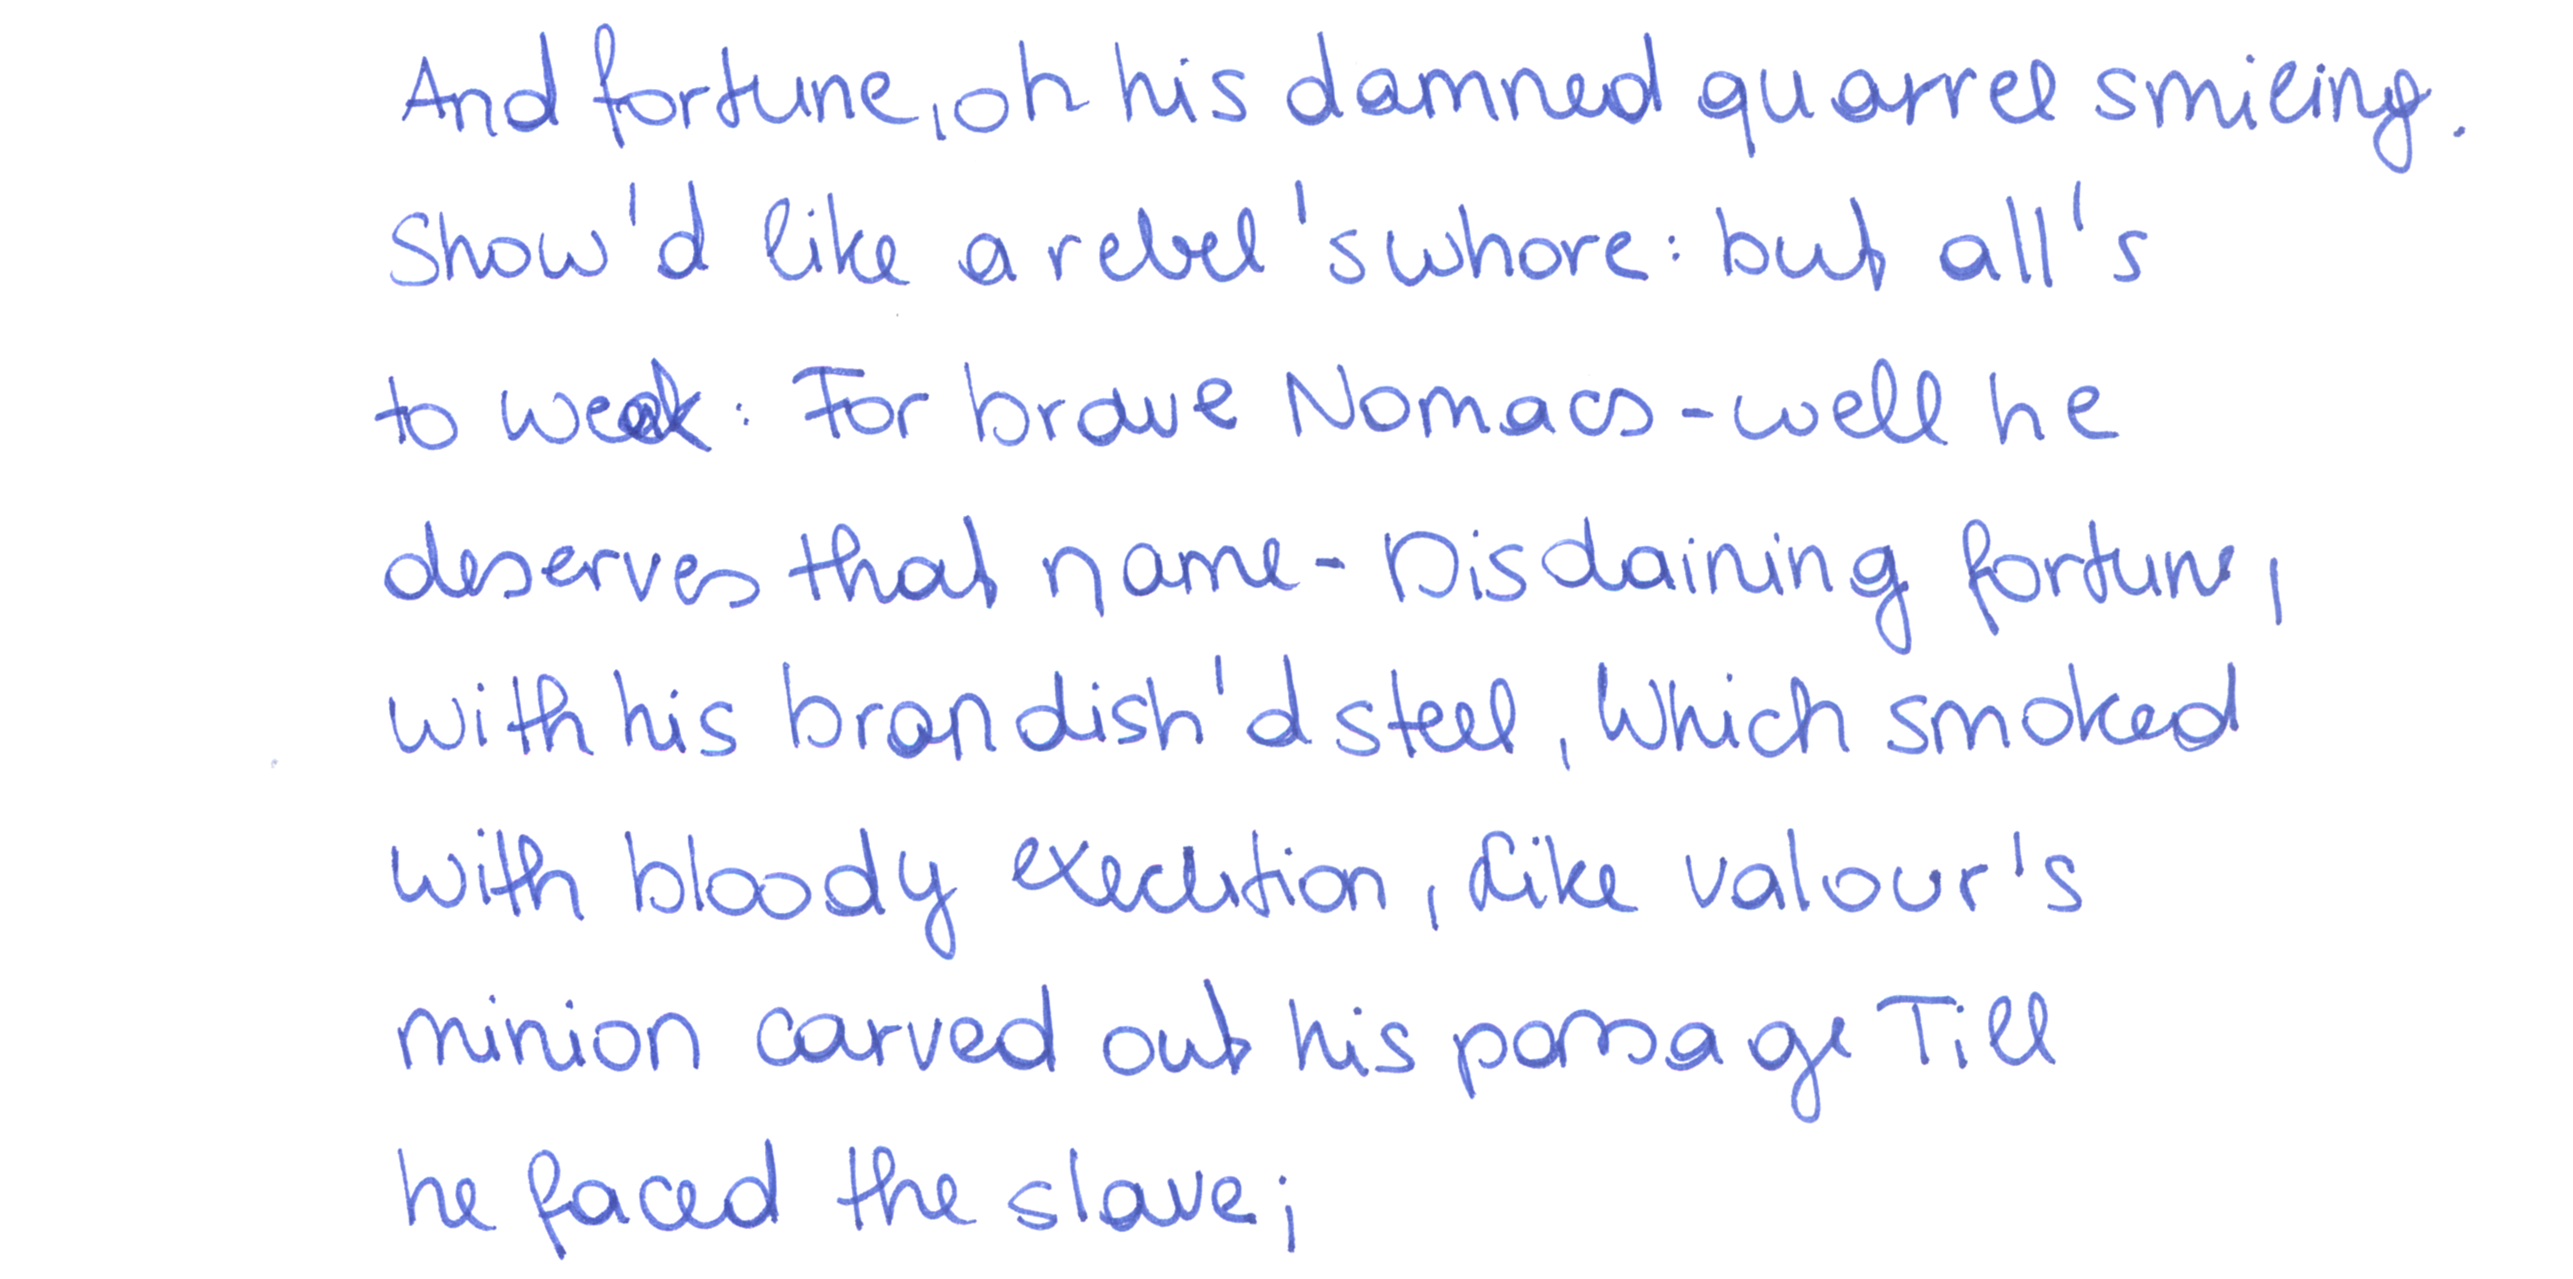 And fortune, oh his damned quarrel smiling.
Show'd like a rebel's whore: but all's
to weak: For brave Nomacs - well he
deserves that name - Disdaining fortune,
with his brandish'd steel, Which smoked
with bloody execution, Like valour's
minion carved out his passage Till
he faced the slave;